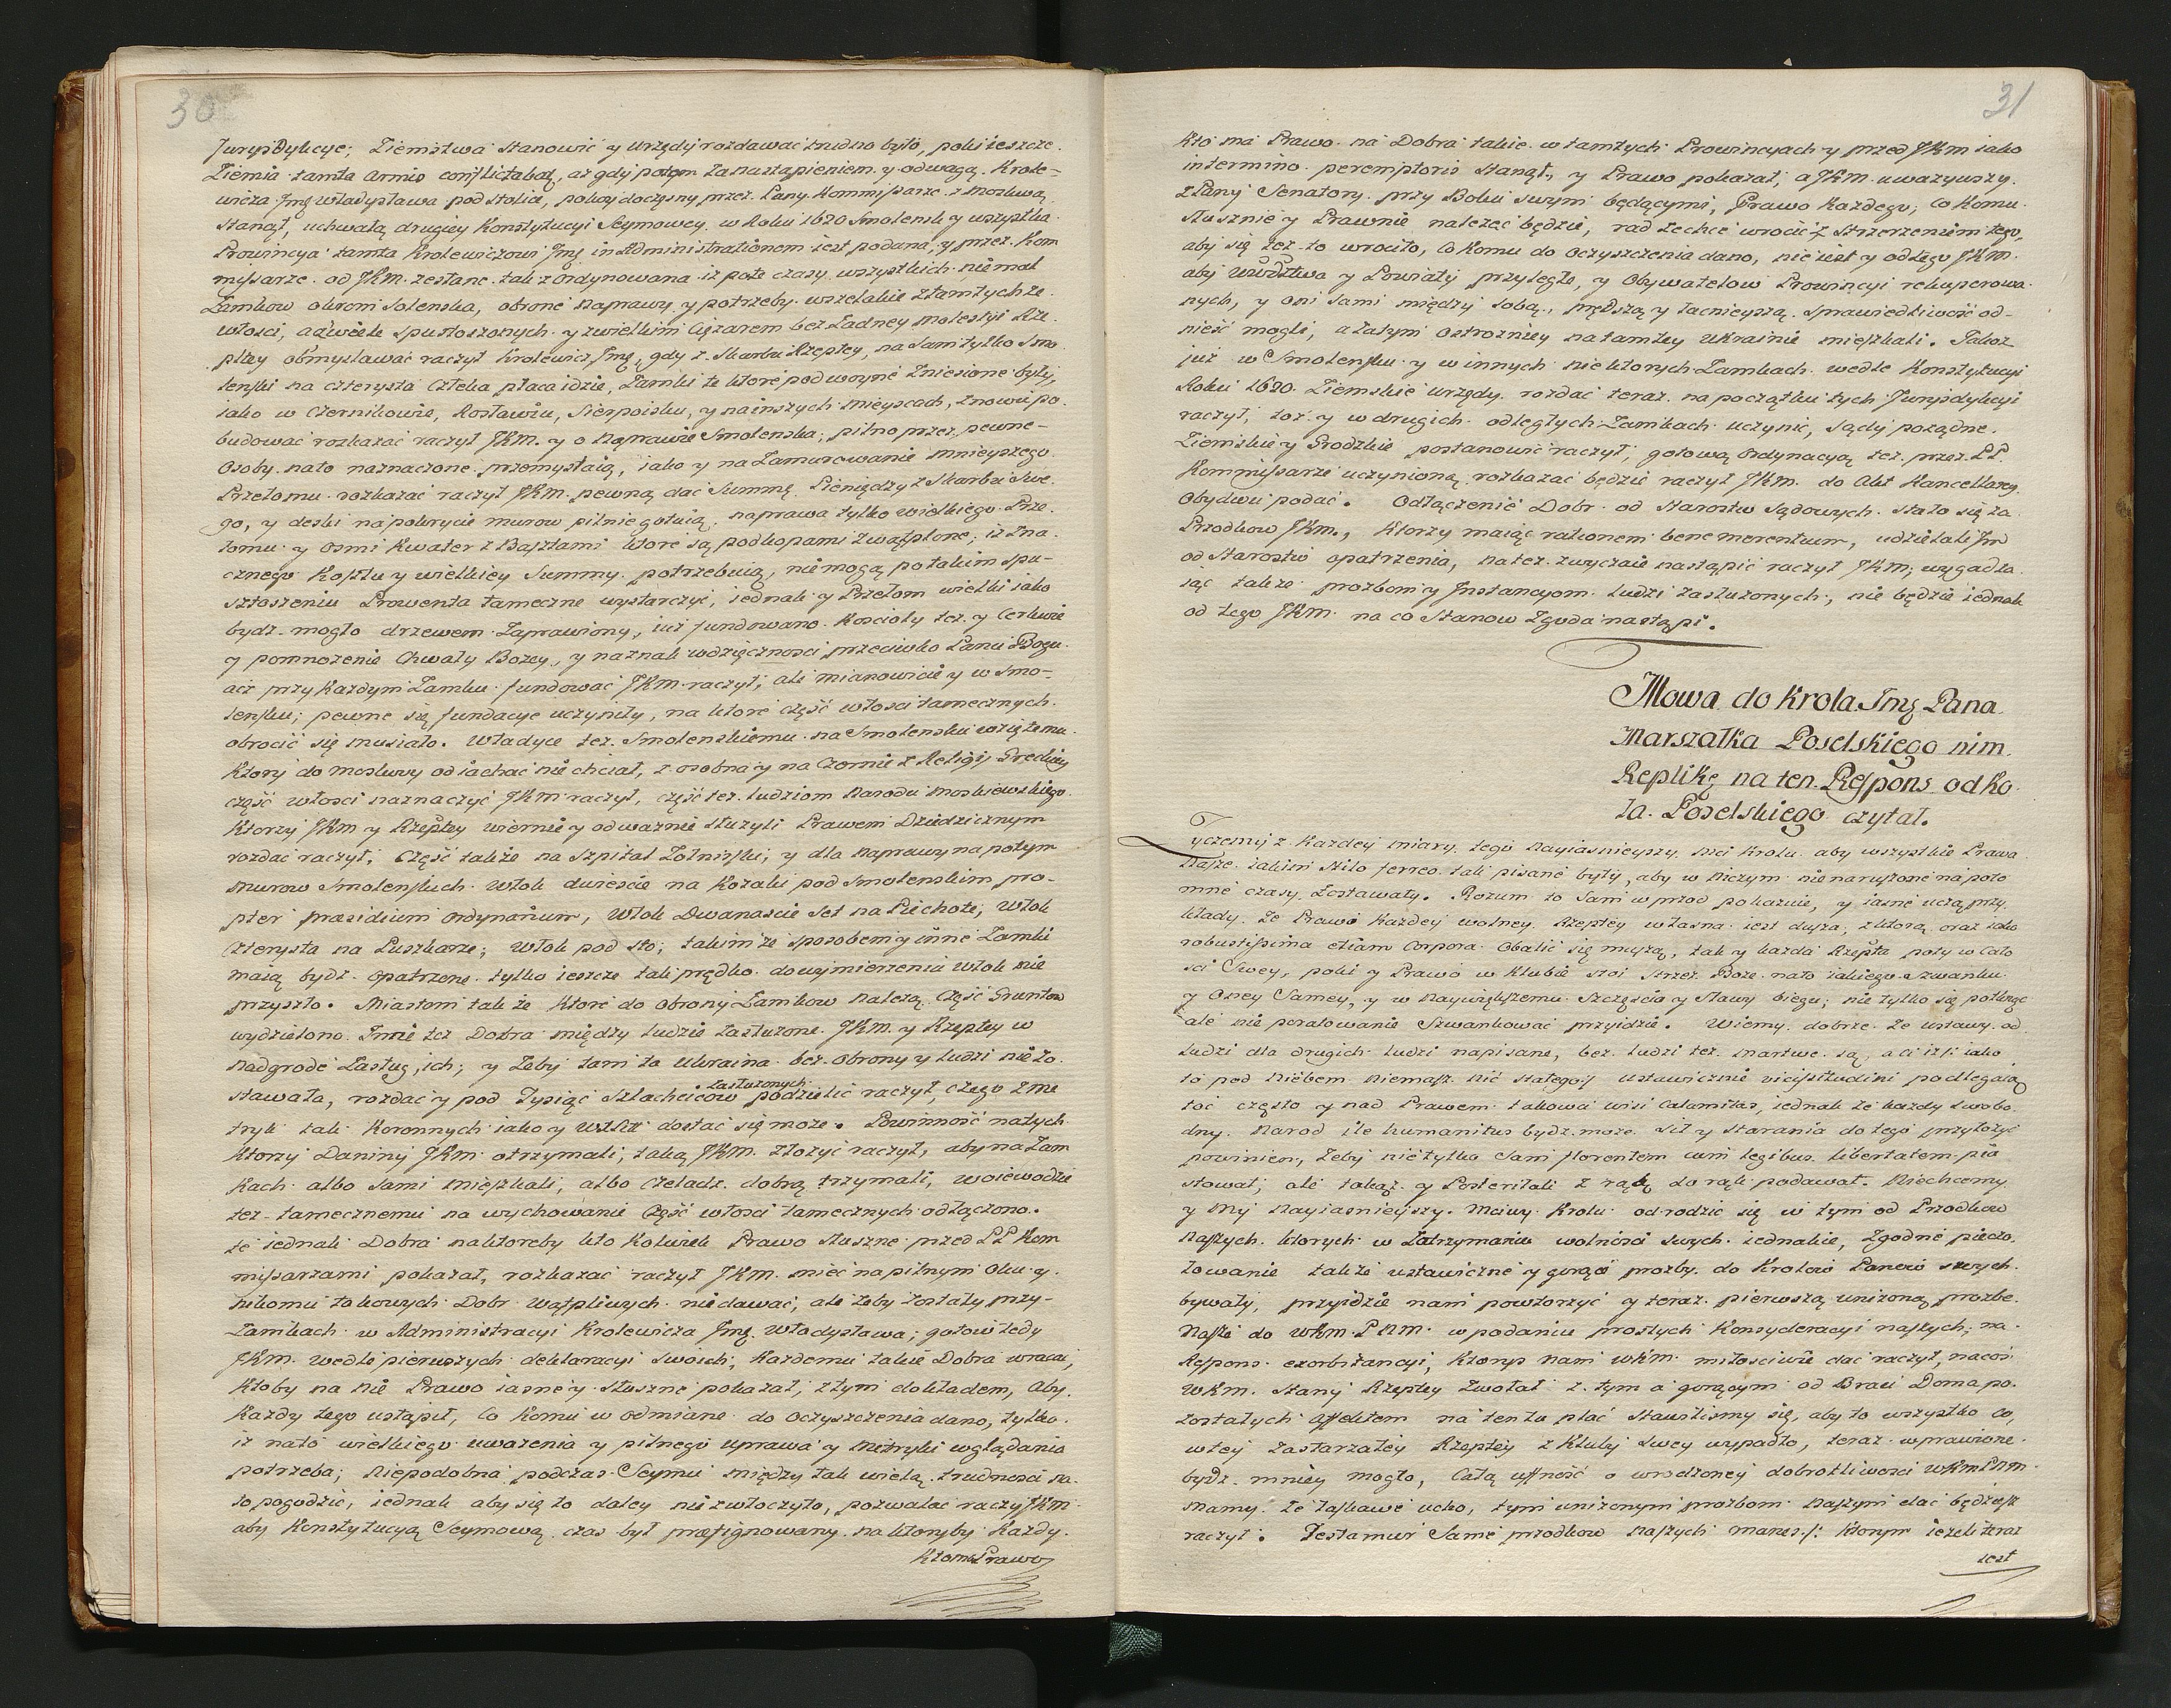 30
Jurysdykcye; Ziemstwa stanowić y urzędy rozdawać trudno było, poki ieszcze
Ziemia tamta armis conflictabat, aż gdy potym za nastąpieniem y odwagą Krole-
wicza Jmę Władysława pod stolicę, pokoy doczęsny przez Pany Kommissarze z Moskwą
stanął, uchwałą drugiey Konstytucyi Seymowey w Roku 1620 Smolensk y wszystka
Prowincya tamta Krolewiczowi Jmę in Administrationem iest podana, y przez Kom
missarze od JKM. zesłane tak zordynowana iż po te czasy wszystkich niemal
Zamkow okrom Solenska, obronę naprawę y potrzeby wszelakie z tamtychże
włosci, acz wiele spustoszonych y z wielkim ciężarem bez żadney molestyi Rze
pltey obmyslawać raczył Krolewicz Jmę, gdy z Skarbu Rzeptey, na sam tylko Smo
lensk na czterysta człeka płaca idzie, Zamki te ktore pod woynę zniesione były,
iako w Czernikowie, Rosławiu, Sierpoisku, y na inszych mieyscach, znowu po
budować rozkazać raczył JKM. y o naprawie Smolenska, pilno przez pewne
osoby na to naznaczone przemyslaią, iako y na zamurowanie mnieyszego
Przełomu rozkazać raczył JKM. pewną dać Summę Pieniędzy z Skarbu Swe
go, y deski na pokrycie murow pilnie gotuią, naprawa tylko wielkiego Prze
łomu y osmi Kwater z Basztami ktore są podkopami zwątplone, iż zna
cznego Kosztu y wielkiey Summy potrzebuią, nie mogą po takim spu-
stoszeniu Prowenta tameczne wystarczyć, iednak y Przełom wielki iako
bydz mogło drzewem zaprawiony, iuż fundowano Koscioły też y Cerkwie
y pomnożenie Chwały Bożey, y na znak wdzięcznosci przeciwko Panu Bogu
acz przy każdym Zamku fundować JKM raczył, ale mianowicie y w Smo-
lensku; pewne się fundacye uczyniły, na ktore część włosci tamecznych
obrocić się musiało. Władyce też Smolenskiemu na Smolensku wziętemu
Ktory do Moskwy odiachać nie chciał, z osobna y na Czernie z Religij Greckiey
część włosci naznaczyć JKM raczył, część też ludziom Narodu Moskiewskiego
Ktorzy JKM y Rzeptey wiernie y odważnie służyli Prawem Dziedzicznym
rozdać raczył; Część także na szpital Żołnirski, y dla naprawy na potym
murow Smolenskich. Włok dwiescie na Kozaki pod Smolenskim pro-
pter præsidium ordynarium, Włok Dwanascie set na Piechotę, Włok
Czterysta na Puszkarze; Włok pod sto; takimże sposobem y inne Zamki
maią bydz opatrzone tylko ieszcze tak prędko do wymierzenia włok nie
przyszło. Miastom takze ktore do obrony Zamkow należą część Gruntow
wydzielono. Inne też Dobra między ludzie zasłużone JKM. y Rzeptey w
nadgrodę zasług ich; y żeby tam ta Ukraina bez obrony y ludzi nie zo
stawała, rozdać y pod Tysiąc Szlachcicow zasłużonych podzielić raczył, czego z me
tryk tak Koronnych iako y WXLitt dostać się może. Powinność na tych
Ktorzy Daniny JKM otrzymali, taką JKM. złożyć raczył, aby na Zam
kach albo sami mieszkali, albo czeladz dobrą trzymali, woiewodzie
też tamecznemu na wychowanie Część włosci tamecznych odłączono.
te iednak Dobra na ktoreby kto kolwiek Prawo słuszne przed PP Kom
missarzami pokazał, rozkazać raczył JKM. mieć na pilnym oku y
nikomu takowych Dobr wątpliwych nie dawać, ale żeby zostały przy-
Zamkach w Administracyi Krolewicza Jmę Władysława; gotow tedy
JKM. wedle pierwszych deklaracyi swoich, każdemu takie Dobra wracać,
Ktoby na nie Prawo iasne y słuszne pokazał, z tym dokładem, aby
każdy tego ustąpił, co komu w odmianę do oczyszczenia dano, tylko
iż na to wielkiego uważenia y pilnego uprawa y Metryki wglądania
potrzeba; niepodobna podczas Seymu między tak wielą trudnosci na
to pogodzić, iednak aby się to daley nie zwłoczyło, pozwalać raczy JKM
aby Konstytucyą Seymową czas był præfignowany na ktoryby każdy
Kto ma Prawo
31
Kto ma Prawo na Dobra takie w tamtych Prowincyach y przed JKm iako
in termino peremptorio stanął, y Prawo pokazał, a JKM uważywszy
z Pany Senatory przy Boku swym będącymi, Prawo każdego; co komu
słusznie y Prawnie należeć będzie, rad zechce wrocić z strzerzeniem tego,
aby się też to wrociło, co komu do oczyszczenia dano, nie iest y od tego JKM.
aby Wodztwa y Powiaty przyległe, y Obywatelow Prowincyi rekuperowa
nych, y oni sami między sobą, prędszą y łacnieyszą sprawiedliwość od-
nieść mogli, a zatym ostrożniey na tamtey Ukrainie mieszkali. Jakoż
już w Smolensku y w innych niektorych Zamkach wedle Konstytucyi
Roku 1620 Ziemskie urzędy rozdać teraz na początku tych Jurysdykcyi
raczył, toż y w drugich odległych Zamkach uczynić, sądy porządne
Ziemskie y Grodzkie postanowić raczył, gotową ordynacyą też przez PP.
Kommissarze uczynioną rozkazać będzie raczył JKM. do Akt Kancellarey
obydwu podać. Odłączenie Dobr od Starostw sądowych stało się za
Przodkow JKm., Ktorzy maiąc rationem bene merentium, udzielali Im
od Starostw opatrzenia, na też zwyczaie nastąpić raczył JKM; wygadza
iąc także proźbom y Instancyom ludzi zasłużonych, nie będzie iednak
od tego JKM na co Stanow zgoda nastąpi.
Mowa do Krola Jmę Pana
Marszałka Poselskiego nim
Replikę na ten Respons od Ko
ła Poselskiego czytał.
Tyczemy z każdey miary tego Nayiasnieyszy Mci Krolu aby wszystkie Prawa
nasze iakim stilo ferreo tak pisane były, aby w niczym nie naruszone na poto
mne czasy zostawały. Rozum to sam wprzod pokazuie, y iasne uczą przy
kłady. że Prawo każdey wolney Rzeptey własna iest dusza, z ktorą oraz iako
robustissima etiam corpora obalić się muszą, tak y każda Rzepta poty w cało
sci swey, poki y Prawo w klubie stoi strzeż Boże na to iakiego szwanku
y oney samey, y w naywiększemu szczęścia y sławy biegu; nie tylko się potknąć
ale nie poratowanie szwankować przyidzie. Wiemy dobrze że ustawy od
ludzi dla drugich ludzi napisane, bez ludzi też martwe są, a ci iż iako
to pod niebem niemasz nic stałego ustawicznie vicissitudini podlegaią
toć często y nad Prawem takowa wisi calamitas, iednak że każdy swobo
dny Narod ile humanitus bydz może sił y starania do tego przyłożyć
powinien, żeby nie tylko sam florentem cum legibus libertatem pia
stował, ale takąż y Posteritati z rąk do rąk podawał. Niechcemy
y my Nayiasnieyszy Mciwy Krolu odrodzić się w tym od Przodkow
naszych ktorych w zatrzymaniu wolnosci swych iednakie, zgodne pieczo
łowanie także ustawiczne y gorące prozby do Krolow Panow swych
bywały, przyidzie nam powtorzyć y teraz pierwszą uniżoną prozbe
nasze do WKM. PNM. w podaniu prostych Konsyderacyi naszych, na
Respons exorbitancyi, ktorys nam WKM. miłosciwie dać raczył, na coś
WKM. Stany Rzeptey zwołał z tym a gorącym od Braci Doma po
zostałych affektem na ten tu plac stawilismy się, aby to wszystko co,
w tey zastarzałey Rzeptey z Kluby swey wypadło, teraz wprawione
bydz mniey mogło, całą ufność o wrodzoney dobrotliwosci WKM PNM
mamy że łaskawe ucho, tym uniżonym prozbom naszym dać będziesz
raczył. Testamur Same przodkow naszych manes /: ktorym ieżeli teraz
iest